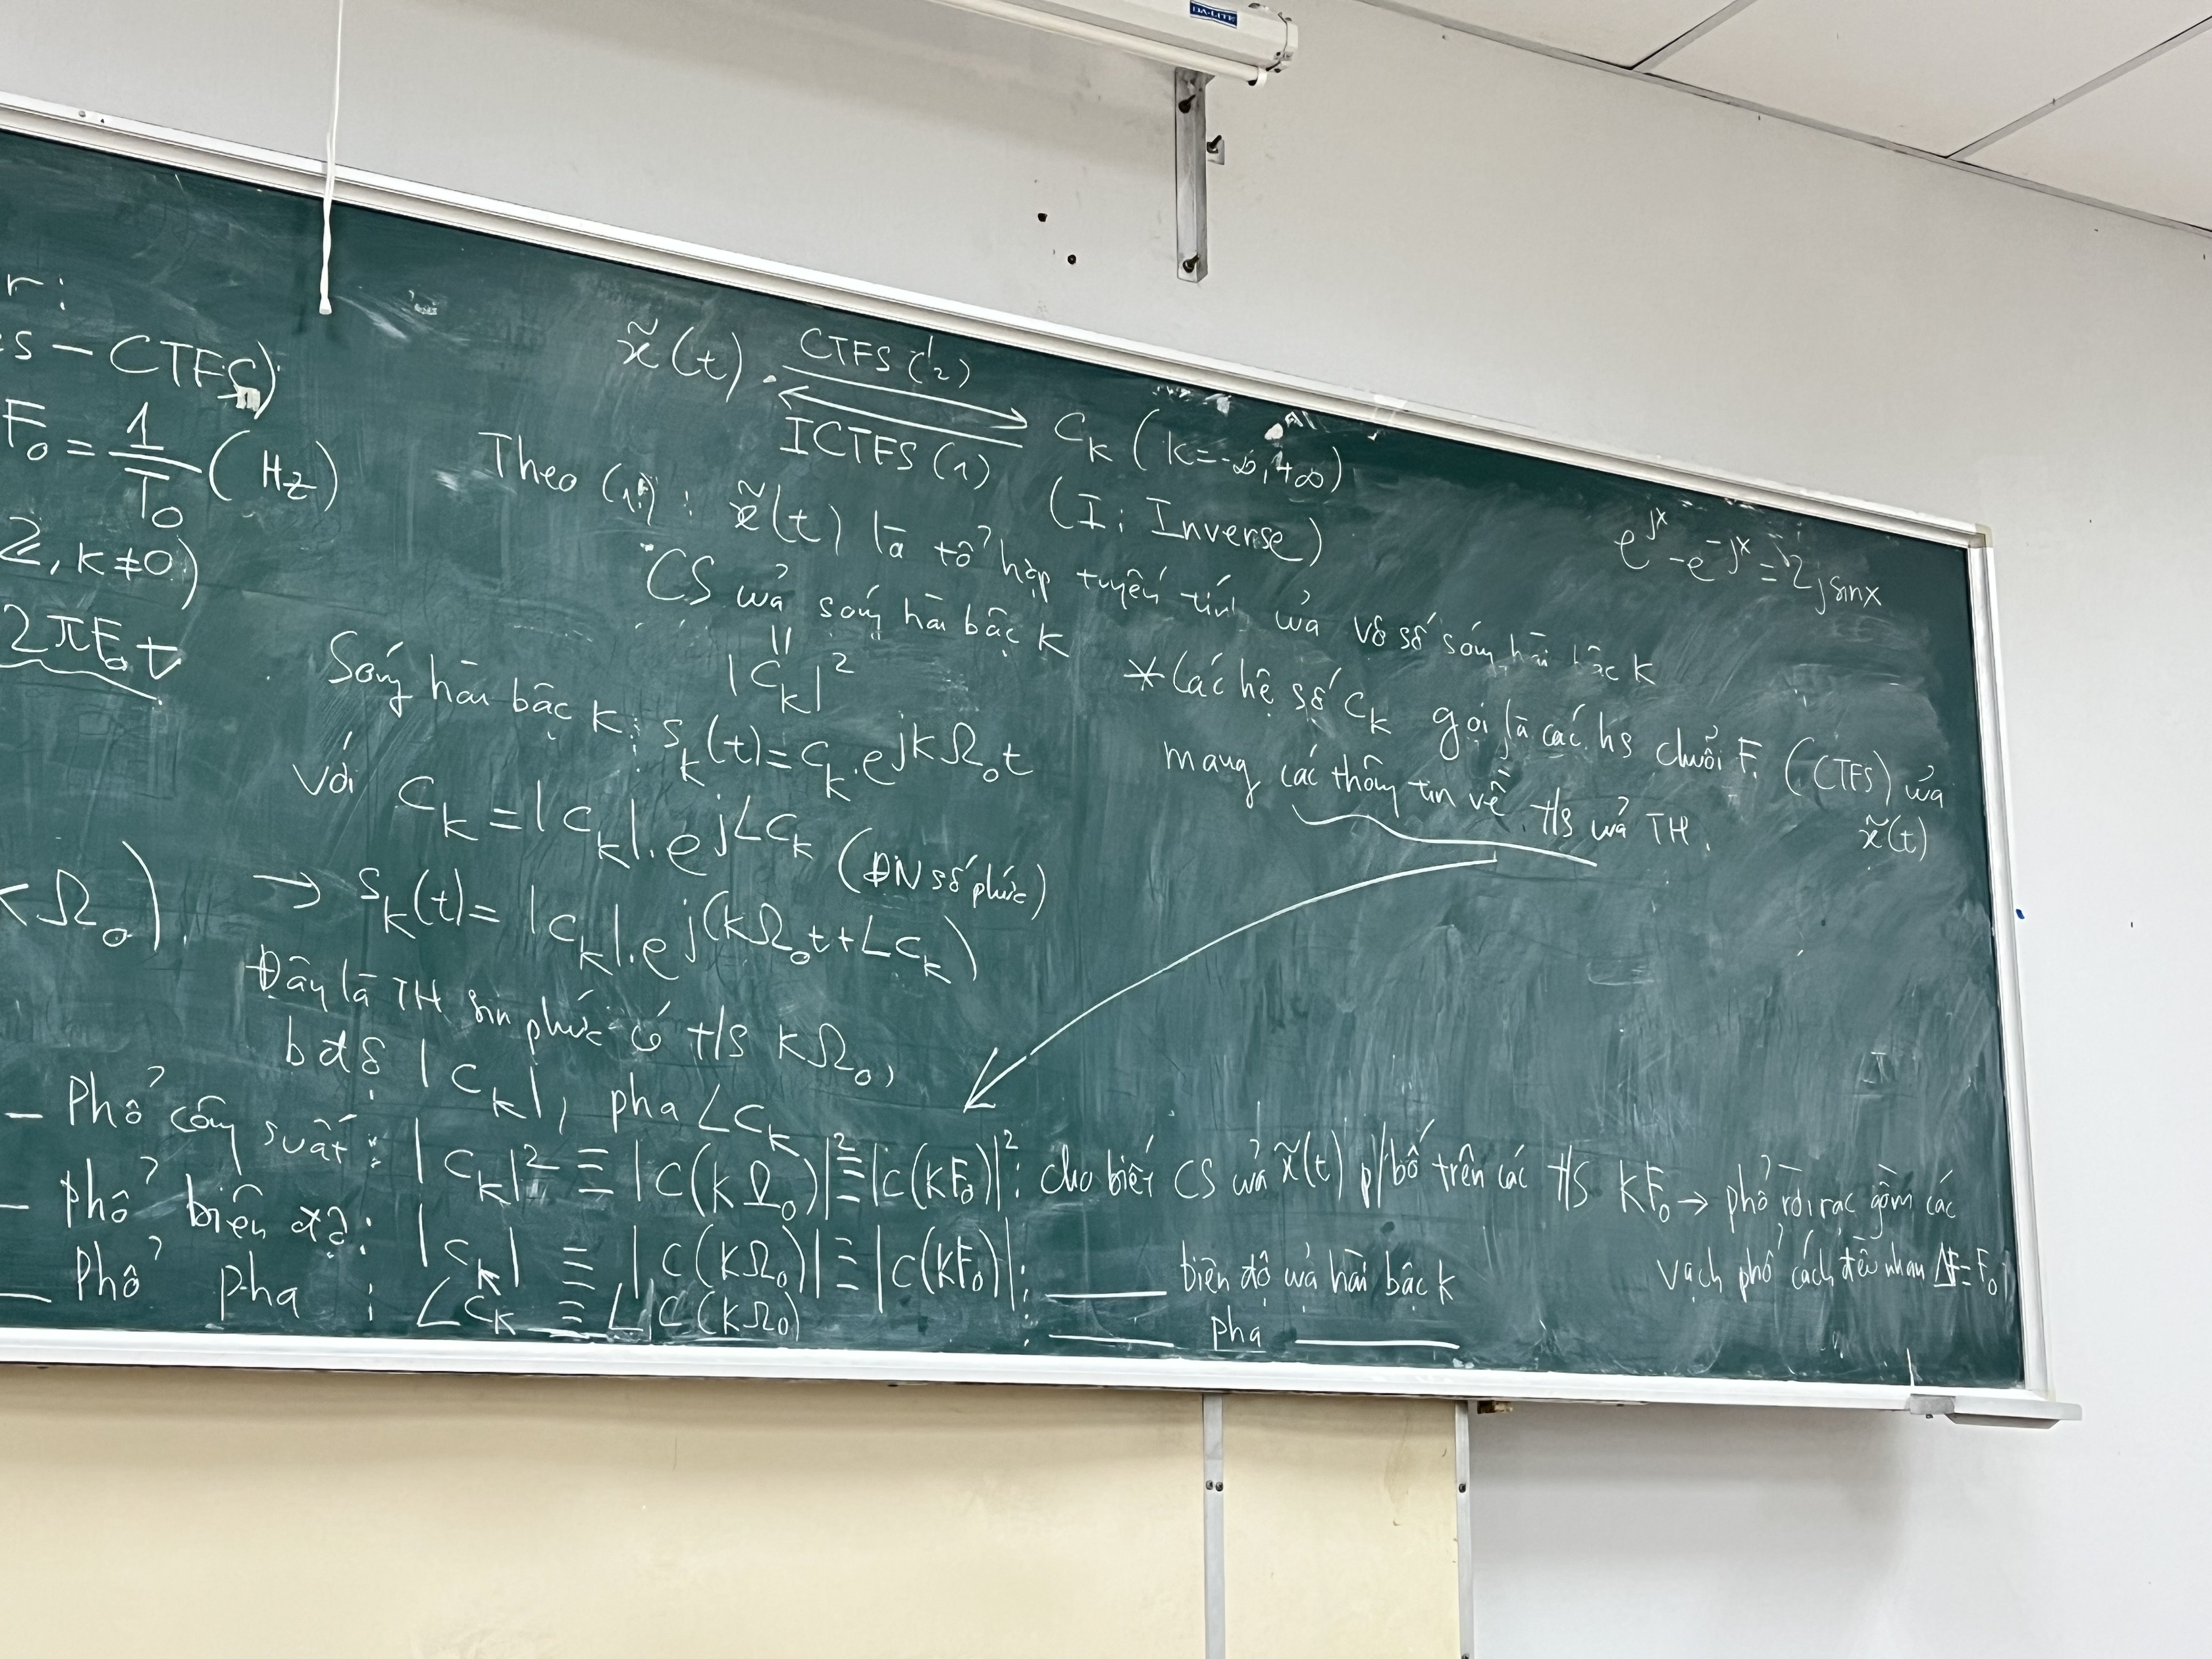 DA-LITE
r:
es – CTFS)
F₀ = 1/T₀ (Hz)
ℤ, k≠0)
2πF₀t
kΩ₀).
x̃(t) CTFS (2) ⇄ ICTFS (1) c_k (k=-∞,+∞)
(I: Inverse)
Theo (1): x̃(t) là tổ hợp tuyến tính của vô số sóng hài bậc k
CS của sóng hài bậc k
=
|c_k|²
Sóng hài bậc k: s_k(t) = c_k.e^{jkΩ₀t}
với c_k = |c_k|.e^{j∠c_k} (ĐN số phức)
→ s_k(t) = |c_k|.e^{j(kΩ₀t+∠c_k)}
Đây là TH sin phức có t/s kΩ₀,
b độ |c_k|, pha ∠c_k
e^{jx} - e^{-jx} = 2jsinx
* Các hệ số c_k gọi là các hs chuỗi F. (CTFS) của x̃(t)
mang các thông tin về t/s của TH.
– Phổ công suất: |c_k|² ≡ |c(kΩ₀)|² ≡ |c(kF₀)|²: cho biết CS của x̃(t) p/bố trên các t/s kF₀ → phổ rời rạc gồm các
vạch phổ cách đều nhau ΔF=F₀
– phổ biên độ: |c_k| ≡ |c(kΩ₀)| ≡ |c(kF₀)|: ____ biên độ của hài bậc k
– Phổ pha : ∠c_k ≡ ∠c(kΩ₀) : ____ pha ____